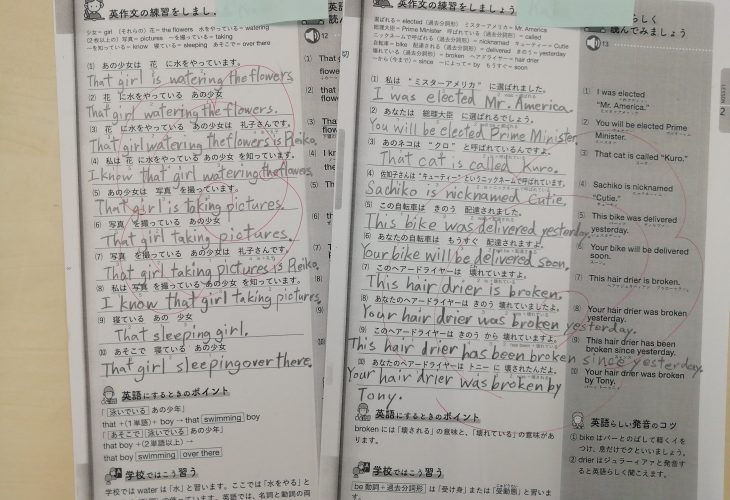 英作文の練習をしまし
少女=girl （それらの）花=the flowers 水をやっている=watering
(2枚以上の)写真=pictures 〜を撮っている=taking
〜を知っている=know 寝ている=sleeping あそこで=over there
(1) あの少女は 花 に水をやっています。
That girl is watering the flowers.
(2) 花 に水をやっている あの少女
That girl watering the flowers.
(3) 花 に水をやっている あの少女は 礼子さんです。
That girl watering the flowers is Reiko.
(4) 私は 花 に水をやっている あの少女 を知っています。
I know that girl watering the flowers.
(5) あの少女は 写真 を撮っています。
That girl is taking pictures.
(6) 写真 を撮っている あの少女
That girl taking pictures.
(7) 写真 を撮っている あの少女は 礼子さんです。
That girl taking pictures is Reiko.
(8) 私は 写真 を撮っている あの少女 を知っています。
I know that girl taking pictures.
(9) 寝ている あの 少女
That sleeping girl.
(10) あそこで 寝ている あの少女
That girl sleeping over there.
英語にするときのポイント
「泳いでいる あの少年」
that +(1単語)+ boy → that swimming boy
「あそこで 泳いでいる あの少年」
that boy +(2単語以上)→
that boy swimming over there
学校ではこう習う
学校では water は「水」と習います。ここでは「水をやる」と
12
英作文の練習をしましょう
選ばれる=elected（過去分詞形） ミスターアメリカ=Mr. America
総理大臣=Prime Minister 呼ばれている=called（過去分詞形）
ニックネームで呼ばれている=nicknamed キューティー=Cutie
自転車=bike 配達される=delivered きのう=yesterday
壊れている=broken（過去分詞形） ヘアードライヤー=hair drier
〜から（今まで）=since 〜によって=by もうすぐ=soon
(1) 私は “ミスターアメリカ” に選ばれました。
I was elected Mr. America.
(2) あなたは 総理大臣 に選ばれるでしょう。
You will be elected Prime Minister.
(3) あのネコは “クロ” と呼ばれているんですよ。
That cat is called Kuro.
(4) 佐知子さんは “キューティー”というニックネームで呼ばれています。
Sachiko is nicknamed Cutie.
(5) この自転車は きのう 配達されました。
This bike was delivered yesterday.
(6) あなたの自転車は もうすぐ 配達されますよ。
Your bike will be delivered soon.
(7) このヘアードライヤーは 壊れていますよ。
This hair drier is broken.
(8) あなたのヘアードライヤーは きのう 壊れていましたよ。
Your hair drier was broken yesterday.
(9) このヘアードライヤーは きのう から 壊れていますよ。
This hair drier has been broken since yesterday.
(10) あなたのヘアードライヤーは トニー に 壊されたんだよ。
Your hair drier was broken by
Tony.
英語にするときのポイント
broken には「壊される」の意味と、「壊れている」の意味があ
ります。
学校ではこう習う
be動詞+過去分詞形 は「受け身」または「受動態」と習いま
らしく
読んでみましょう
13
(1) I was elected
“Mr. America.”
(2) You will be elected Prime
Minister.
(3) That cat is called “Kuro.”
(4) Sachiko is nicknamed
“Cutie.”
(5) This bike was delivered
yesterday.
(6) Your bike will be delivered
soon.
(7) This hair drier is broken.
(8) Your hair drier was broken
yesterday.
(9) This hair drier has been
broken since yesterday.
(10) Your hair drier was broken
by Tony.
英語らしい発音のコツ
① bike はバーとのばして軽くイをつ
け、息だけでクといいましょう。
② drier はジュラーィアと発音す
ると英語らしく聞こえます。
2